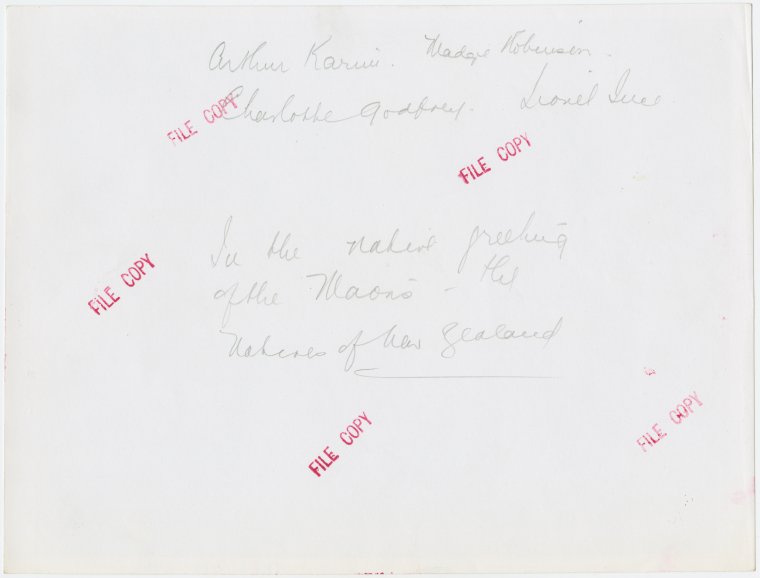 Arthur Karini. Madge Robinson.
Charlotte Godfrey. Lionel
FILE COPY
FILE COPY
In the native greeting
of the Maoris - the
Natives of New Zealand
FILE COPY
FILE COPY
FILE COPY